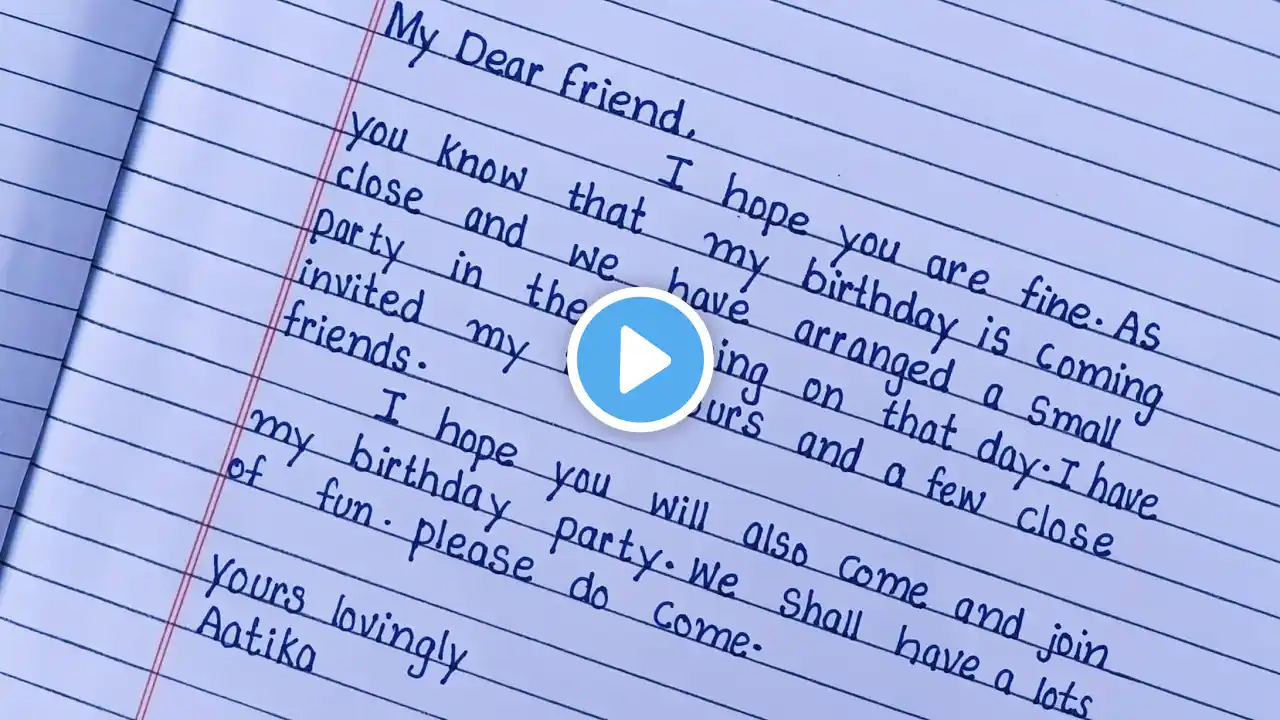 My Dear friend,
I hope you are fine. As
you know that my birthday is coming
close and we have arranged a small
party in the on that day. I have
invited my and a few close
friends.
I hope you will also come and join
my birthday party. We shall have a lots
of fun. please do come.
yours lovingly
Aatika